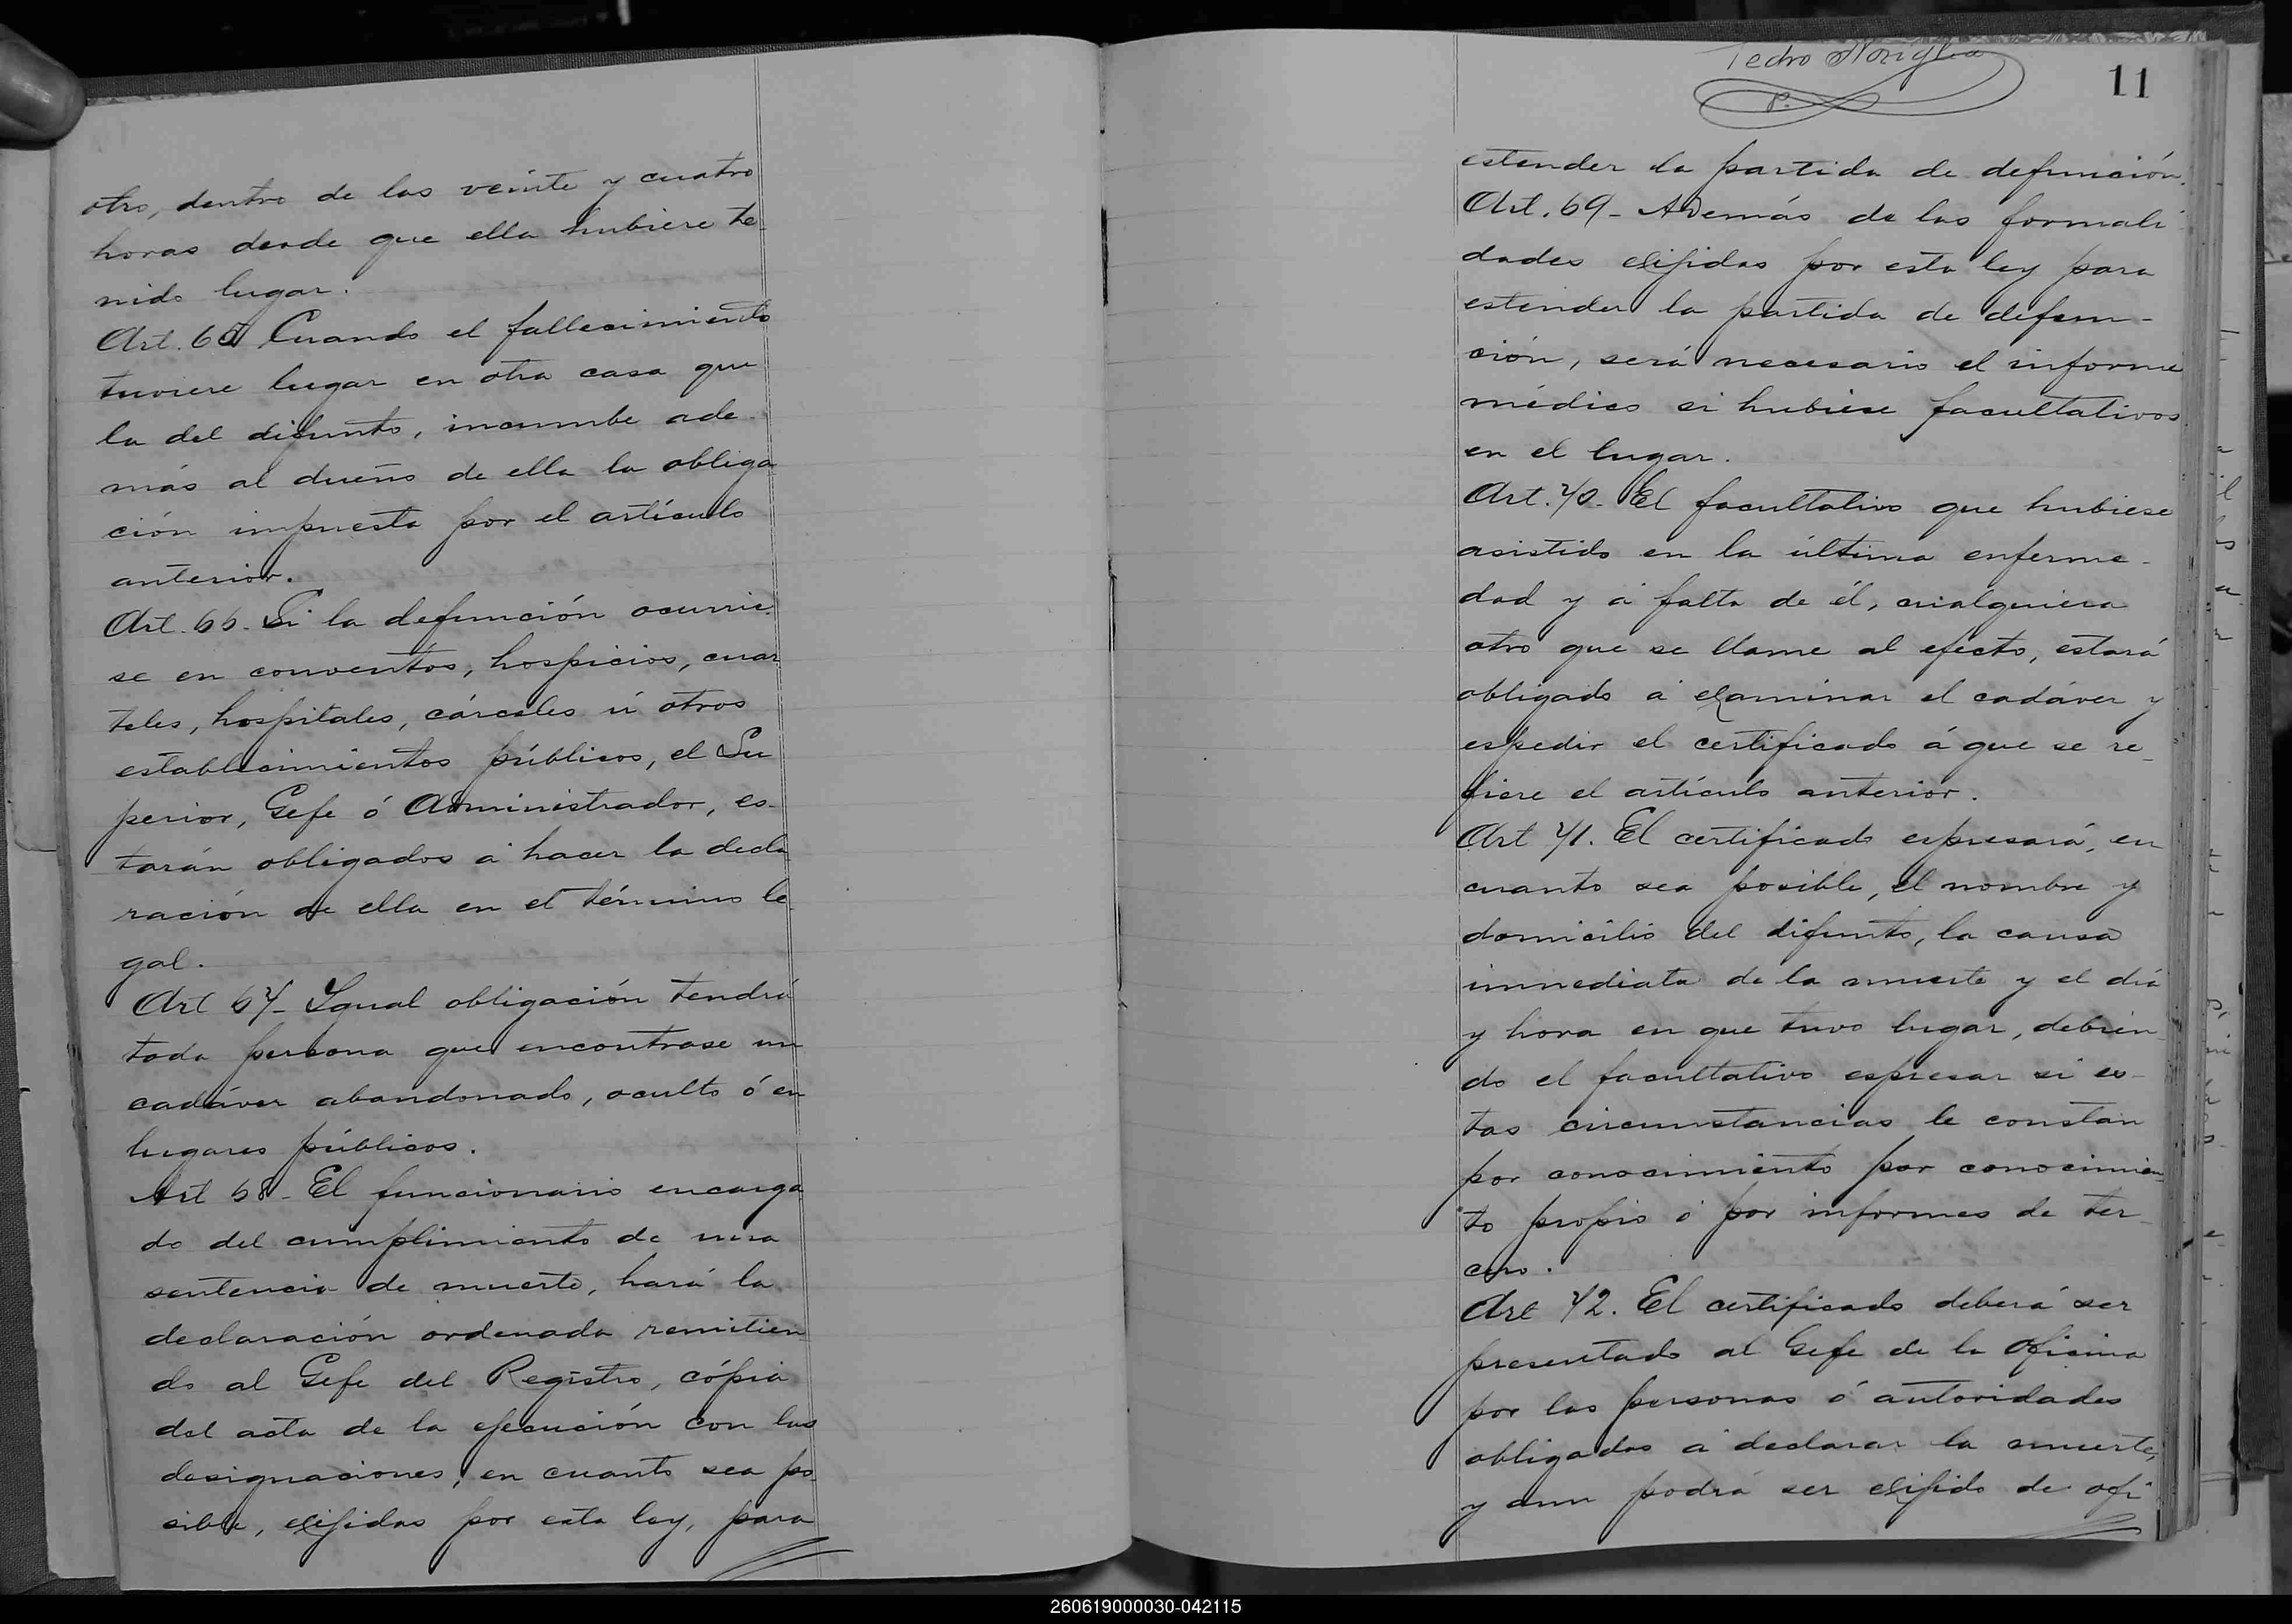 otro, dentro de las veinte y cuatro
horas desde que ella hubiere te-
nido lugar.
Art. 65 Cuando el fallecimiento
tuviere lugar en otra casa que
la del difunto, incumbe ade-
más al dueño de ella la obliga
ción impuesta por el artículo
anterior.
Art. 66. Si la defunción ocurrie-
se en conventos, hospicios, cuar
teles, hospitales, cárceles ú otros
establecimientos públicos, el Su
perior, Gefe ó Administrador, es-
tarán obligados á hacer la decla
ración de ella en el término le-
gal.
Art 67- Igual obligación tendrá
toda persona que encontrase un
cadáver abandonado, oculto ó en
lugares públicos.
Art 68- El funcionario encarga
do del cumplimiento de una
sentencia de muerte, hará la
declaración ordenada remitien
do al Gefe del Registro, cópia
del acta de la ejecución con las
designaciones, en cuanto sea po-
sible, exijidas por esta ley, para
Pedro
P.
11
estender la partida de defunción.
Art. 69- Además de las formali
dades exijidas por esta ley para
estender la partida de defun-
ción, será necesario el informe
médico si hubiese facultativos
en el lugar.
Art. 70- El facultativo que hubiese
asistido en la última enferme-
dad y á falta de él, cualquiera
otro que se llame al efecto, estará
obligado á examinar el cadáver y
espedir el certificado á que se re-
fiere el artículo anterior.
Art 71. El certificado espresará, en
cuanto sea posible, el nombre y
domicilio del difunto, la causa
inmediata de la muerte y el día
y hora en que tuvo lugar, debien
do el facultativo espresar si es-
tas circunstancias le constan
por conocimiento por conocimien-
to propio ó por informes de ter-
cero.
Art 72. El certificado deberá ser
presentado al Gefe de la Oficina
por las personas ó autoridades
obligadas á declarar la muerte,
y aun podrá ser exijido de ofi
260619000030-042115